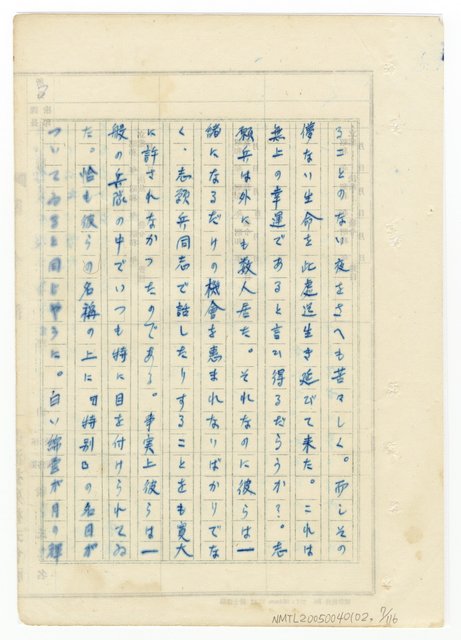 ることのない夜をさへも苦々しく。而しその
儚ない生命を此處迄生き延びて来た。これは
無上の幸運であると言ひ得るだらうか?。志
願兵は外にも数人居た。それなのに彼らは一
緒になるだけの機會を恵まれないばかりでな
く、志願兵同志で話したりすることをも寛大
に許されなかつたのである。事実上彼らは一
般の兵隊の中でいつも特に目を付けられてゐ
た。恰も彼らの名稱の上に『特別』の名目が
ついてゐると同じやうに。白い綿雲が月の群
NMTL20050040102, 7/116